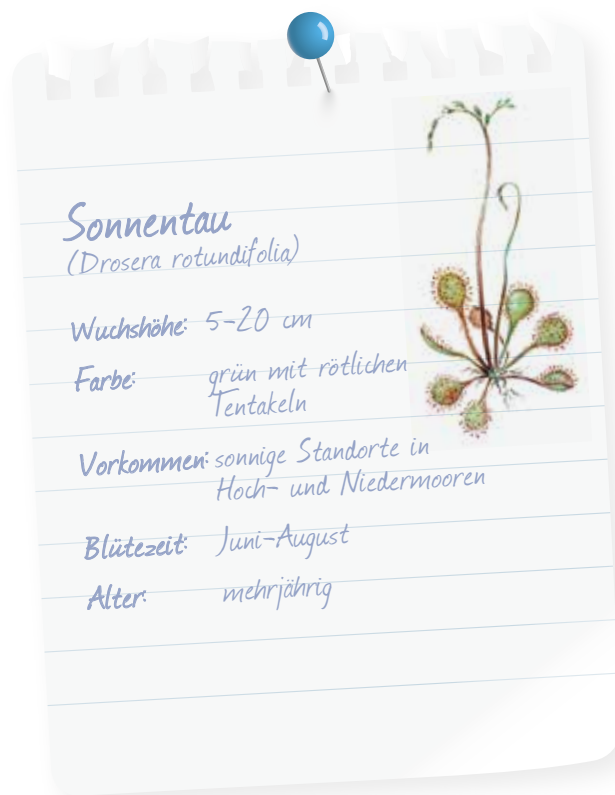 Sonnentau
(Drosera rotundifolia)
Wuchshöhe: 5-20 cm
Farbe: grün mit rötlichen
Tentakeln
Vorkommen: sonnige Standorte in
Hoch- und Niedermooren
Blütezeit: Juni-August
Alter: mehrjährig